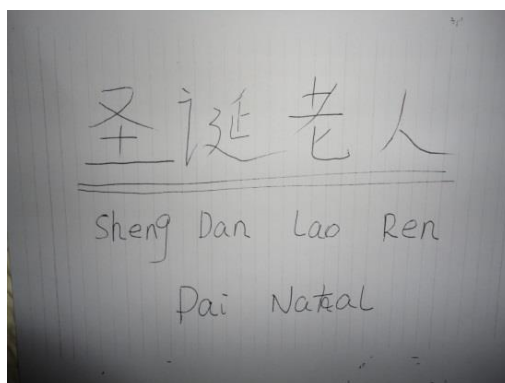 圣诞老人
Sheng Dan Lao Ren
Pai Natal